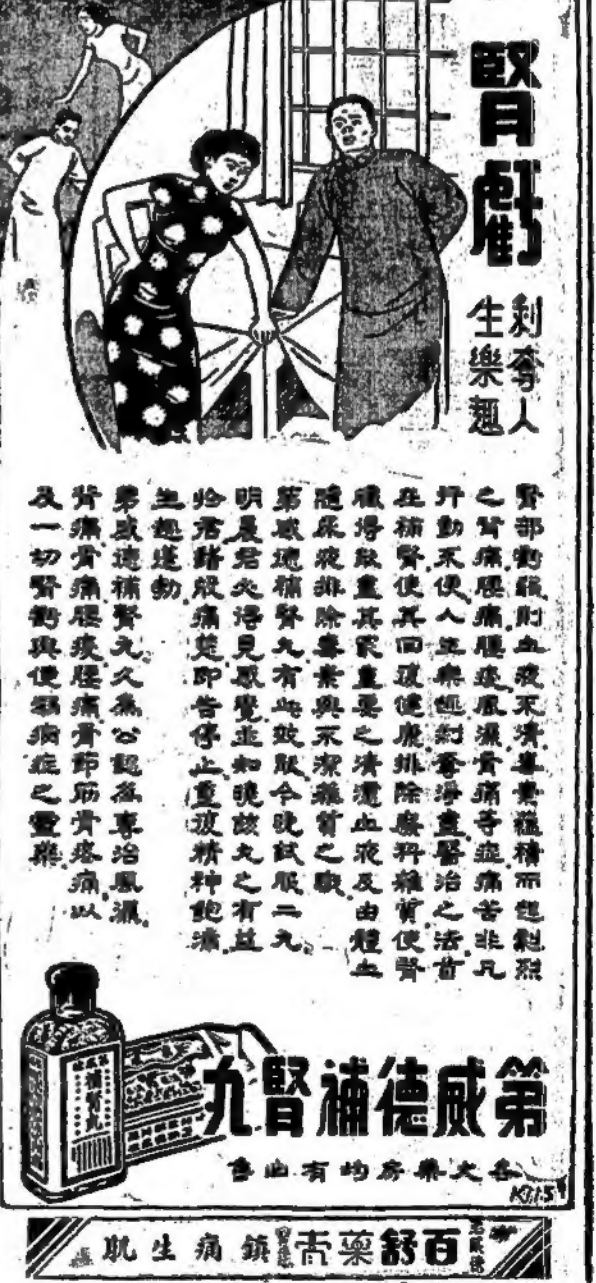 腎虧
剝奪人
生樂趣
腎部虧弱則血液不清，毒素蘊積而起劇烈
之背痛，腰痛，腰痠，風濕骨痛等症，痛苦非凡
行動不便，人生樂趣剝奪淨盡，醫治之法，首
在補腎，使其回復健康，排除廢料雜質，使腎
臟得能盡其最重要之清濾血液，及由體血
隨尿液排除毒素與不潔雜質之職。
第威德補腎丸有此效能，今晚試服二丸，
明晨君必得見感覺並知曉該丸之有益
於君，諸般痛楚，即告停止，重復精神飽滿，
生趣蓬勃。
第威德補腎丸久為公認為專治風濕，
背痛，骨痛，腰痠，腰痛，骨節筋骨疼痛，以
及一切腎虧與便溺病症之靈藥。
補腎丸
第威德補腎丸
各大藥房均有出售
百舒藥膏
鎮痛生肌